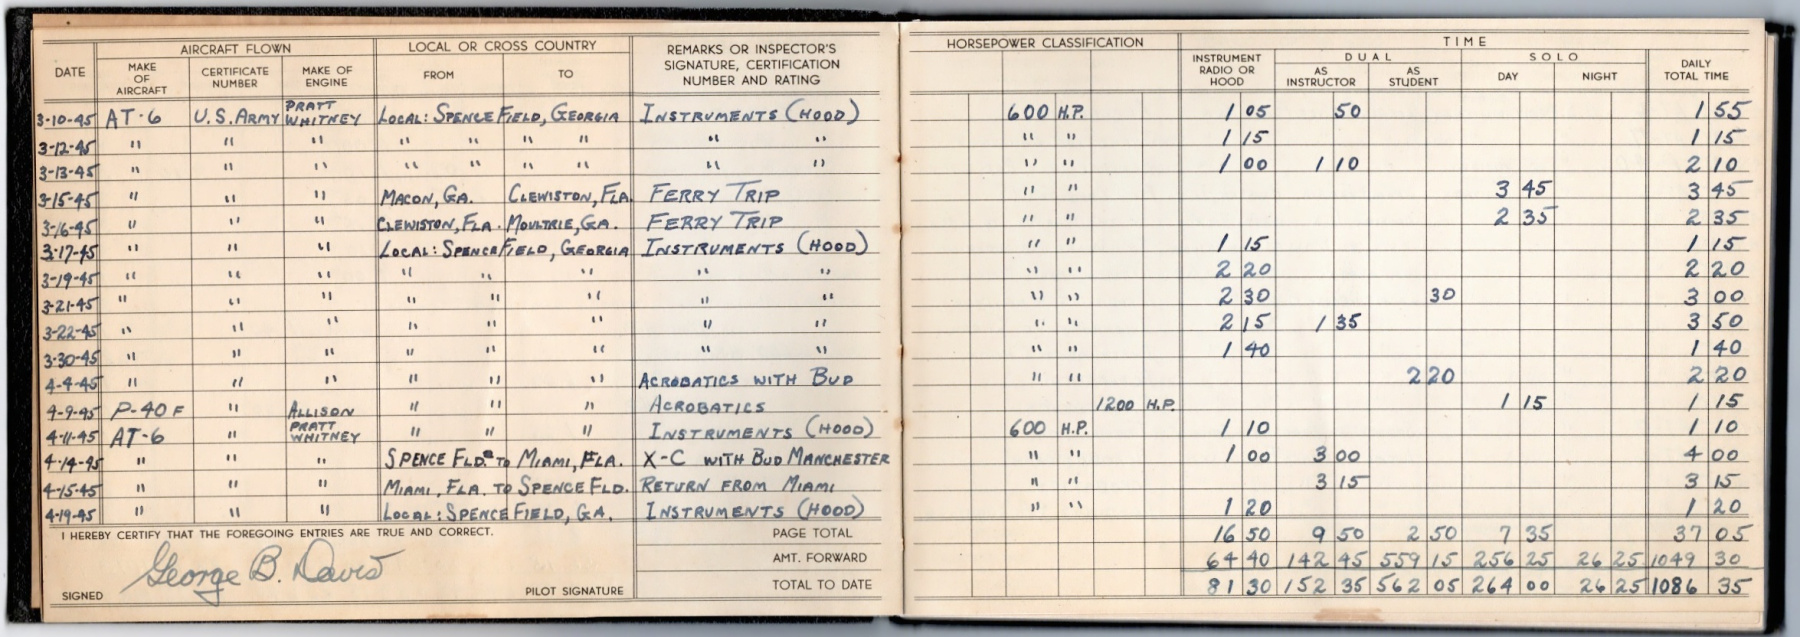 AIRCRAFT FLOWN LOCAL OR CROSS COUNTRY REMARKS OR INSPECTOR'S SIGNATURE, CERTIFICATION NUMBER AND RATING HORSEPOWER CLASSIFICATION TIME
DATE MAKE OF AIRCRAFT CERTIFICATE NUMBER MAKE OF ENGINE FROM TO INSTRUMENT RADIO OR HOOD DUAL AS INSTRUCTOR AS STUDENT SOLO DAY NIGHT DAILY TOTAL TIME
3-10-45 AT-6 U.S. ARMY PRATT WHITNEY LOCAL: SPENCE FIELD, GEORGIA INSTRUMENTS (HOOD) 600 H.P. 1 05 50 1 55
3-12-45 " " " " " " " " " " " 1 15 1 15
3-13-45 " " " " " " " " " " " 1 00 1 10 2 10
3-15-45 " " " MACON, GA. CLEWISTON, FLA. FERRY TRIP " " 3 45 3 45
3-16-45 " " " CLEWISTON, FLA. MOULTRIE, GA. FERRY TRIP " " 2 35 2 35
3-17-45 " " " LOCAL: SPENCE FIELD, GEORGIA INSTRUMENTS (HOOD) " " 1 15 1 15
3-19-45 " " " " " " " " " " 2 20 2 20
3-21-45 " " " " " " " " " " 2 30 30 3 00
3-22-45 " " " " " " " " " " 2 15 1 35 3 50
3-30-45 " " " " " " " " " " 1 40 1 40
4-4-45 " " " " " " ACROBATICS WITH BUD " " 2 20 2 20
4-9-45 P-40 F " ALLISON " " " ACROBATICS 1200 H.P. 1 15 1 15
4-11-45 AT-6 " PRATT WHITNEY " " " INSTRUMENTS (HOOD) 600 H.P. 1 10 1 10
4-14-45 " " " SPENCE FLD. TO MIAMI, FLA. X-C WITH BUD MANCHESTER " " 1 00 3 00 4 00
4-15-45 " " " MIAMI, FLA. TO SPENCE FLD. RETURN FROM MIAMI " " 3 15 3 15
4-19-45 " " " LOCAL: SPENCE FIELD, GA. INSTRUMENTS (HOOD) " " 1 20 1 20
I HEREBY CERTIFY THAT THE FOREGOING ENTRIES ARE TRUE AND CORRECT. PAGE TOTAL 16 50 9 50 2 50 7 35 37 05
George B. Davis AMT. FORWARD 64 40 142 45 559 15 256 25 26 25 1049 30
SIGNED PILOT SIGNATURE TOTAL TO DATE 81 30 152 35 562 05 264 00 26 25 1086 35